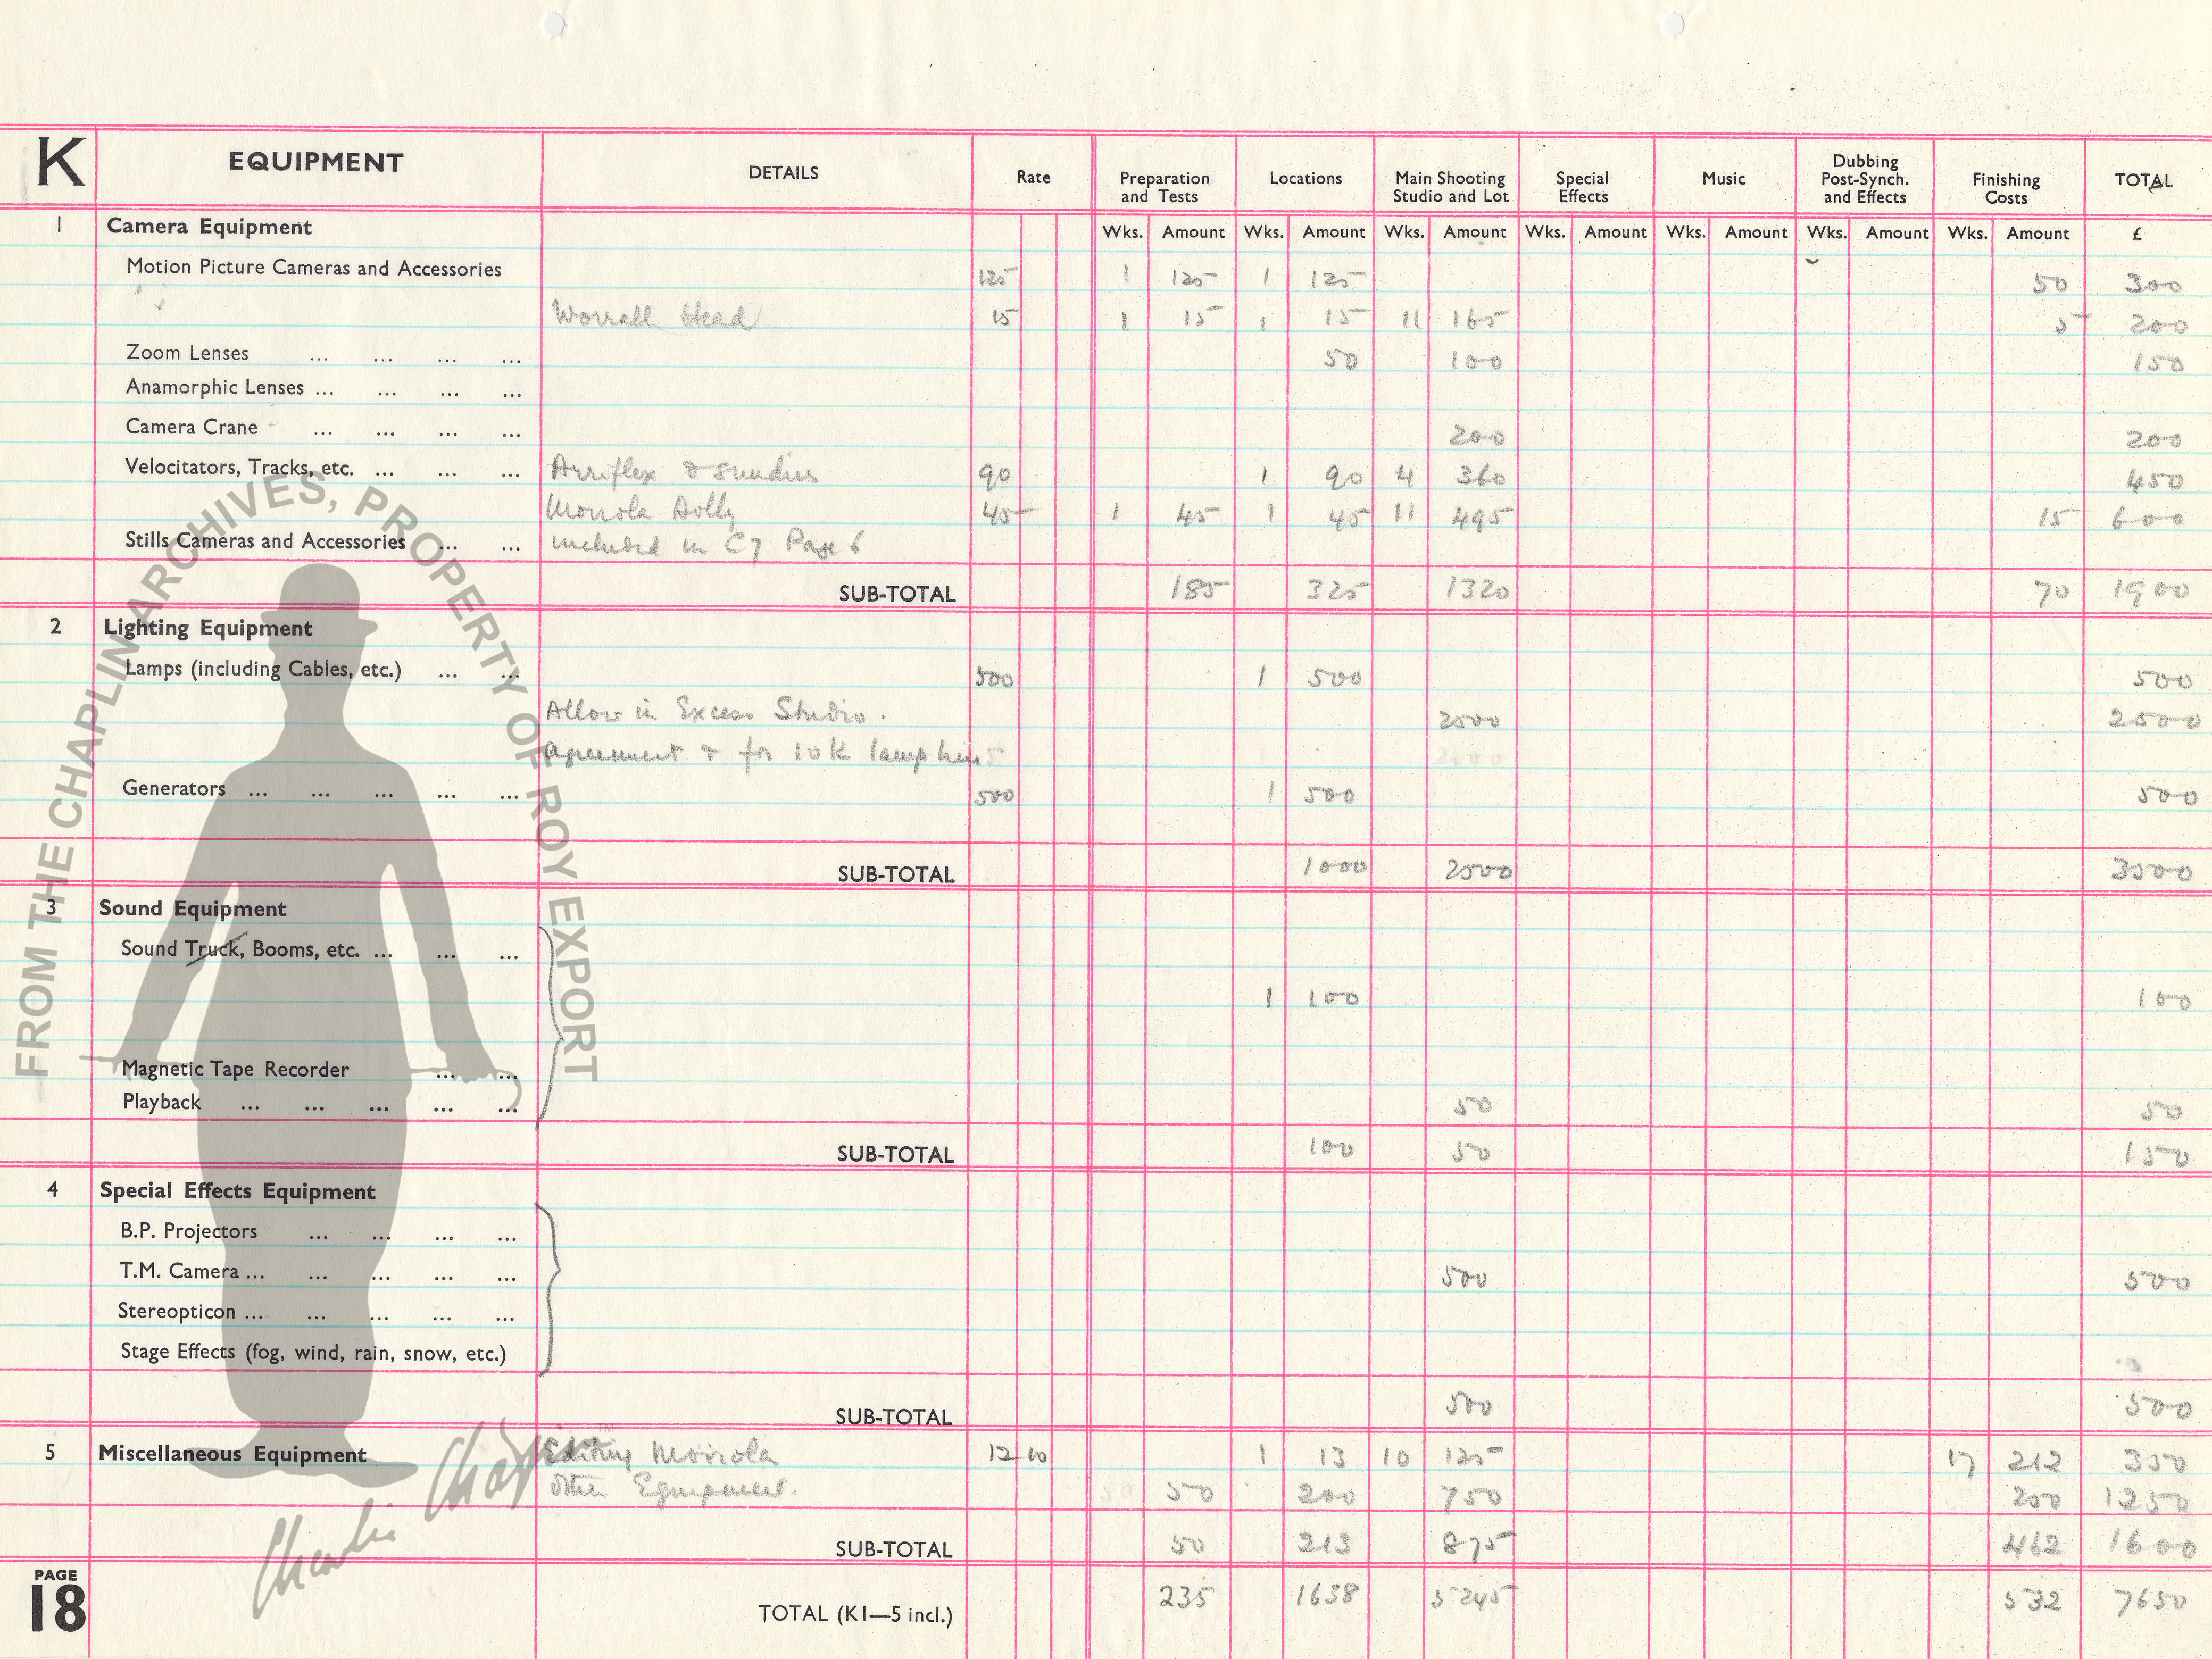 K EQUIPMENT DETAILS Rate Preparation and Tests Locations Main Shooting Studio and Lot Special Effects Music Dubbing Post-Synch. and Effects Finishing Costs TOTAL
1 Camera Equipment Wks. Amount Wks. Amount Wks. Amount Wks. Amount Wks. Amount Wks. Amount Wks. Amount £
Motion Picture Cameras and Accessories 125 1 125 1 125 50 300
Worrall Head 15 1 15 1 15 11 165 5 200
Zoom Lenses ... ... ... ... 50 100 150
Anamorphic Lenses ... ... ... ...
Camera Crane ... ... ... ... 200 200
Velocitators, Tracks, etc. ... ... ... Arriflex & sundries 90 1 90 4 360 450
Dolly 45 1 45 1 45 11 495 15 600
Stills Cameras and Accessories ... ... included in C7 Page 6
SUB-TOTAL 185 325 1320 70 1900
2 Lighting Equipment
Lamps (including Cables, etc.) ... ... 500 1 500 500
Allow in Excess Studio. 2500 2500
agreement & for 10K lamp hire
Generators ... ... ... ... ... 500 1 500 500
SUB-TOTAL 1000 2500 3500
3 Sound Equipment
Sound Truck, Booms, etc. ... ... ...
1 100 100
Magnetic Tape Recorder ... ...
Playback ... ... ... ... ... 50 50
SUB-TOTAL 100 50 150
4 Special Effects Equipment
B.P. Projectors ... ... ... ...
T.M. Camera ... ... ... ... ... 500 500
Stereopticon ... ... ... ... ...
Stage Effects (fog, wind, rain, snow, etc.)
SUB-TOTAL 500 500
5 Miscellaneous Equipment Editing Moviola 12 10 1 13 10 125 17 212 350
Other Equipment. 50 200 750 250 1250
SUB-TOTAL 50 213 875 462 1600
PAGE 18 TOTAL (K1—5 incl.) 235 1638 5245 532 7650
FROM THE CHAPLIN ARCHIVES, PROPERTY OF ROY EXPORT
Charlie Chaplin